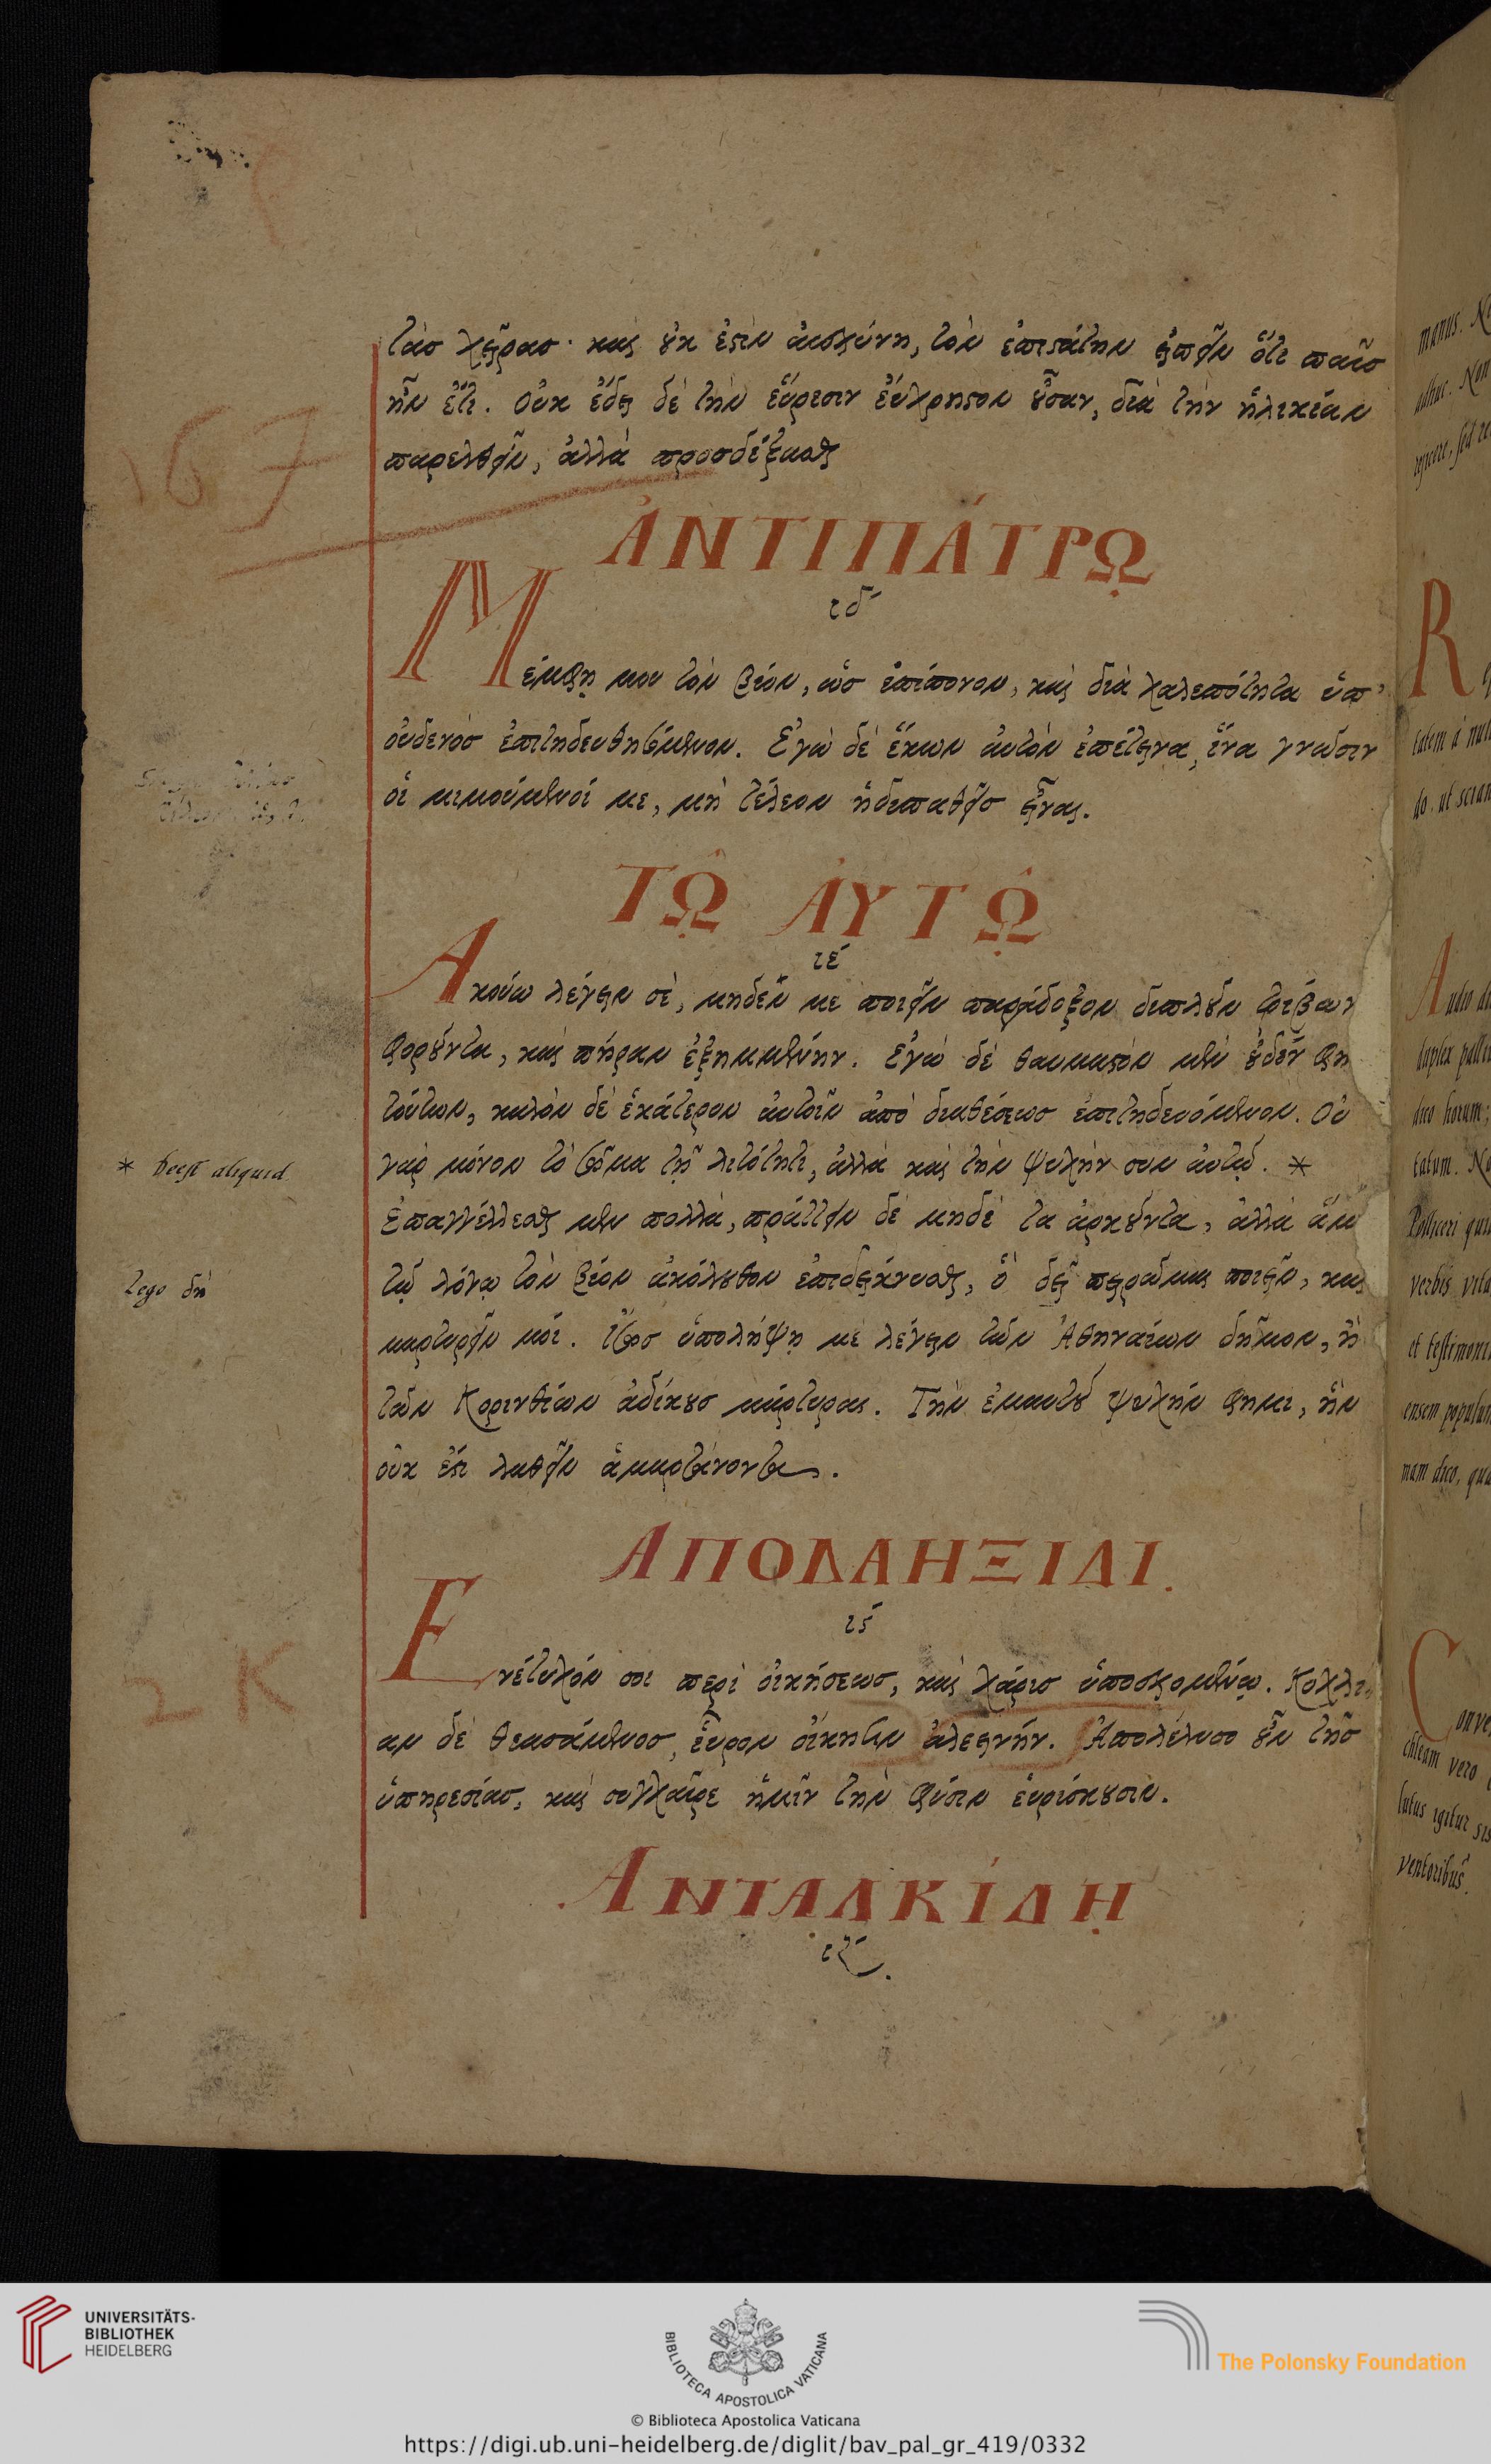 τὰσ χεῖρασ· καὶ οὐκ ἔστιν ἀισχύνη, τὸν ἐπιστάτην ἐιπεῖν ὅτι παῖσ
ἦν ἔτι. Οὐκ ἔδει δὲ τὴν ἕυρεσιν ἔυχρηστον οὖσαν, διὰ τὴν ἡλικίαν
παρελθεῖν, ἀλλὰ προσδέξασθαι
167
ἈΝΤΙΠΆΤΡῼ
ιδ
Μέμφῃ μου τὸν βίον, ὡσ ἐπίπονον, καὶ διὰ χαλεπότητα ὑπ'
οὐδενὸσ ἐπιτηδευθησόμενον. Ἐγὼ δὲ ἕκων ἀυτὸν ἐπέτεινα, ἵνα γνῶσιν
οἱ μιμούμενοί με, μὴ τέλεον ἡδυπαθεῖσ εἶναι.
ΤΩ͂Ι ἈΥΤΩ͂Ι
ιέ
Ακούω λέγειν σὲ, μηδὲν με ποιεῖν παράδοξον διπλοῦν τρίβων
φοροῦντα, καὶ πήραν ἐξημμένην. Ἐγὼ δὲ θαυμαστὸν μὲν οὐδὲν φη
τούτων, καλὸν δὲ ἑκάτερον ἀυτοῖν ἀπὸ διαθέσεωσ ἐπιτηδευόμενον. Οὐ
γὰρ μόνον τὸ σῶμα τῇ λιτότητι, ἀλλὰ καὶ τὴν ψυχὴν συν ἀυτῷ. *
* Deest aliquid
Ἐπαγγέλλεσθαι μεν πολλὰ, πράττειν δὲ μηδὲ τα ἀρκοῦντα, ἀλλὰ ἅμ
τῷ λόγῳ τὸν βίον ἀκόλουθον ἐπιδείκνυσθαι, ὃ δεῖ πειρῶμαι ποιεῖν, καὶ
lego δὴ
μαρτυρεῖν μόι. Ἴσωσ ὑπολήψῃ μὲ λέγειν τῶν Ἀθηναίων δῆμον, ἢ
τῶν Κορινθίων ἀδίκουσ μάρτυρας. Τὴν ἐμαυτοῦ ψυχήν φημι, ἣν
οὐκ ἔστι λαθεῖν ἁμαρτάνοντα.
ΑΠΟΛΛΗΞΙΔΙ.
ις
2 K
Ενέτυχόν σοι περὶ οἰκήσεωσ, καὶ χάρισ ὑποσχομένῳ. Κοχλί
αν δὲ θεασάμενοσ, εὗρον οἴκησιν ἀλεεινήν. Ἀπολέλυσο οὖν τῆσ
ὑπηρεσίασ, καὶ σύγχαιρε ἡμῖν τὴν φύσιν ἑυρίσκουσιν.
ΑΝΤΑΛΚΊΔΗΙ
ιζ.
manus.
adhuc. Non
R
do, ut sciant
Audio
duplex
dico horum;
tatum.
Polliceri
verbis
et testimoni
ensem populum
nam dico, qua
C
chleam vero
lutus igitur sis
ventoribus.
UNIVERSITÄTS-
BIBLIOTHEK
HEIDELBERG
BIBLIOTECA APOSTOLICA VATICANA
The Polonsky Foundation
© Biblioteca Apostolica Vaticana
https://digi.ub.uni-heidelberg.de/diglit/bav_pal_gr_419/0332